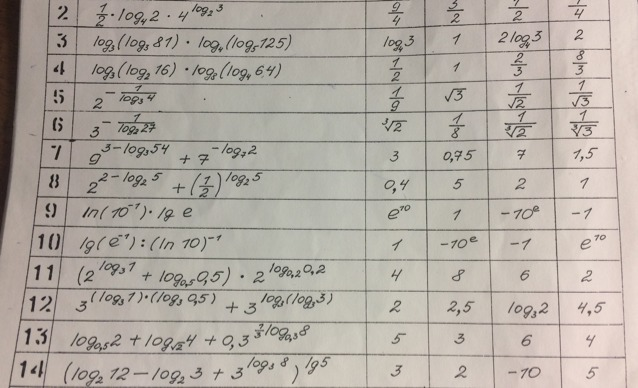 2 1/2 · log₄2 · 4^(log₂3) 9/4 3/2 1/2 1/4
3 log₃(log₃81) · log₄(log₅125) log₄3 1 2log₄3 2
4 log₃(log₂16) · log₈(log₄64) 1/2 1 2/3 8/3
5 2^(-1/(log₃4)) 1/9 √3 1/√2 1/√3
6 3^(-1/(log₂27)) ∛2 1/8 1/∛2 1/∛3
7 9^(3-log₃54) + 7^(-log₇2) 3 0,75 7 1,5
8 2^(2-log₂5) + (1/2)^(log₂5) 0,4 5 2 1
9 ln(10⁻¹) · lg e e¹⁰ 1 -10ᵉ -1
10 lg(e⁻¹) : (ln 10)⁻¹ 1 -10ᵉ -1 e¹⁰
11 (2^(log₃1) + log₀,₅0,5) · 2^(log₀,₂0,2) 4 8 6 2
12 3^((log₃1)·(log₃0,5)) + 3^(log₃(log₃3)) 2 2,5 log₃2 4,5
13 log₀,₅2 + log_(√2)4 + 0,3^(2/3 log₀,₃8) 5 3 6 4
14 (log₂12 - log₂3 + 3^(log₃8))^(lg5) 3 2 -10 5